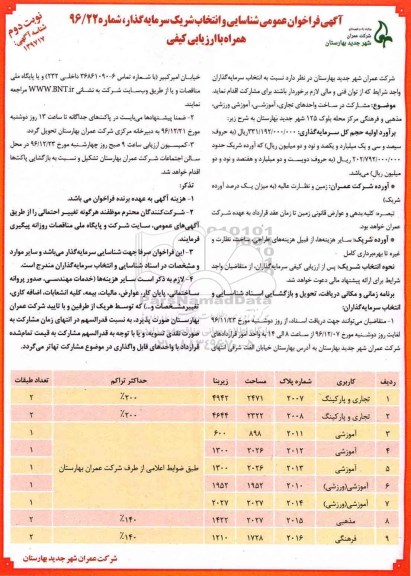 آگهی فراخوان عمومی شناسایی و انتخاب شریک سرمایه گذار، شماره ۹۶/۲۲
همراه با ارزیابی کیفی
نوبت دوم
شرکت عمران
شهر جدید بهارستان
شرکت عمران شهر جدید بهارستان در نظر دارد نسبت به انتخاب سرمایه‌گذاران
واجد شرایط که از توان فنی و مالی لازم برخوردار باشند برای مشارکت اقدام نماید.
موضوع: مشارکت در ساخت واحدهای تجاری، آموزشی، آموزشی ورزشی،
مذهبی و فرهنگی مرکز محله بلوک ۱۲۵ شهر جدید بهارستان به شرح زیر:
برآورد اولیه حجم کل سرمایه‌گذاری: ۳۳۱/۱۹۲/۰۰۰/۰۰۰ ریال (به حروف
سیصد و سی و یک میلیارد و یکصد و نود و دو میلیون ریال) که آورده شریک حدود
۲۰۲/۷۹۲/۰۰۰/۰۰۰ ریال (به حروف دویست و دو میلیارد و هفتصد و نود و دو
میلیون ریال) می‌باشد.
* آورده شرکت عمران: زمین و نظارت عالیه (به میزان یک درصد آورده
شریک)
تبصره: کلیه بدهی و عوارض قانونی زمین تا زمان عقد قرارداد به عهده شرکت
عمران خواهد بود.
* آورده شریک: سایر هزینه‌ها، از قبیل هزینه‌های طراحی، ساخت، نظارت و
غیره تا بهره‌برداری کامل
نحوه انتخاب شریک: پس از ارزیابی کیفی سرمایه‌گذاران، از متقاضیان واجد
شرایط برای ارائه پیشنهاد مالی دعوت خواهد شد.
برنامه زمانی و مکانی دریافت، تحویل و بازگشایی اسناد شناسایی و
انتخاب سرمایه‌گذاران:
۱- متقاضیان می‌توانند جهت دریافت اسناد، از روز دوشنبه مورخ ۹۶/۱۱/۲۳
لغایت روز دوشنبه مورخ ۹۶/۱۲/۰۷ از ساعت ۸ الی ۱۴ به واحد امور قراردادهای
شرکت عمران شهر جدید بهارستان به آدرس بهارستان خیابان الفت شرقی انتهای
خیابان امیرکبیر (با شماره تماس ۶-۳۶۸۶۱۰۹۰ داخلی ۲۳۲) و یا پایگاه ملی
مناقصات و یا از طریق وب‌سایت شرکت به نشانی WWW.BNT.ir مراجعه
نمایند
۲- ضمنا پیشنهادها می‌بایست در پاکت‌های جداگانه تا ساعت ۱۳ روز دوشنبه
مورخ ۹۶/۱۲/۲۱ به دبیرخانه مرکزی شرکت عمران بهارستان تحویل گردد.
۳- کمیسیون ارزیابی ساعت ۹ صبح روز چهارشنبه مورخ ۹۶/۱۲/۲۳ در محل
سالن اجتماعات شرکت عمران بهارستان تشکیل و نسبت به بازگشایی پاکت‌ها
اقدام خواهد شد.
تذکر:
۱- هزینه آگهی به عهده برنده فراخوان می باشد.
۲- شرکت‌کنندگان محترم موظفند هرگونه تغییر احتمالی را از طریق
آگهی‌های عمومی، سایت شرکت و پایگاه ملی مناقصات روزانه پیگیری
فرمایند.
۳- این فراخوان صرفا جهت شناسایی سرمایه‌گذار می‌باشد و سایر موارد
و مشخصات در اسناد شناسایی و انتخاب سرمایه‌گذاران مندرج است.
۴- لازم به ذکر است سایر هزینه‌ها (خدمات مهندسی، صدور پروانه
ساختمانی، پایان کار، عوارض، مالیات، بیمه، کلیه انشعابات، اضافه کاری،
تغییر مشخصات و...) که توسط هر یک از طرفین و با تایید شرکت عمران
بهارستان صورت پذیرد، به نسبت قدرالسهم در انتهای زمان مشارکت به
صورت نقدی تسویه و یا با توجه به قدرالسهم مشارکت به قیمت تمام‌شده
قرارداد با واحدهای قابل واگذاری در موضوع مشارکت تهاتر می‌گردد.
ردیف کاربری شماره پلاک مساحت زیربنا حداکثر تراکم تعداد طبقات
۱ تجاری و پارکینگ ۲۰۰۷ ۲۴۷۱ ۴۹۴۲ ٪۲۰۰ ۲
۲ تجاری و پارکینگ ۲۰۰۸ ۲۳۲۲ ۴۶۴۴ ٪۲۰۰ ۲
۳ آموزشی ۲۰۱۱ ۸۹۸ ۶۰۰ ۱
۴ آموزشی ۲۰۱۲ ۲۰۲۶ ۱۳۰۰ ۱
۵ آموزشی ۲۰۱۳ ۲۰۲۶ ۱۳۰۰ طبق ضوابط اعلامی از طرف شرکت عمران بهارستان ۱
۶ آموزشی(ورزشی) ۲۰۱۰ ۱۹۵۲ ۱۹۵۲ ۱
۷ آموزشی(ورزشی) ۲۰۱۴ ۲۰۲۷ ۲۰۲۷ ۱
۸ مذهبی ۲۰۱۵ ۲۰۲۷ ۱۴۲۲ ٪۱۴۰ ۲
۹ فرهنگی ۲۰۱۶ ۱۷۲۸ ۱۲۱۰ ٪۱۴۰ ۲
شرکت عمران شهر جدید بهارستان